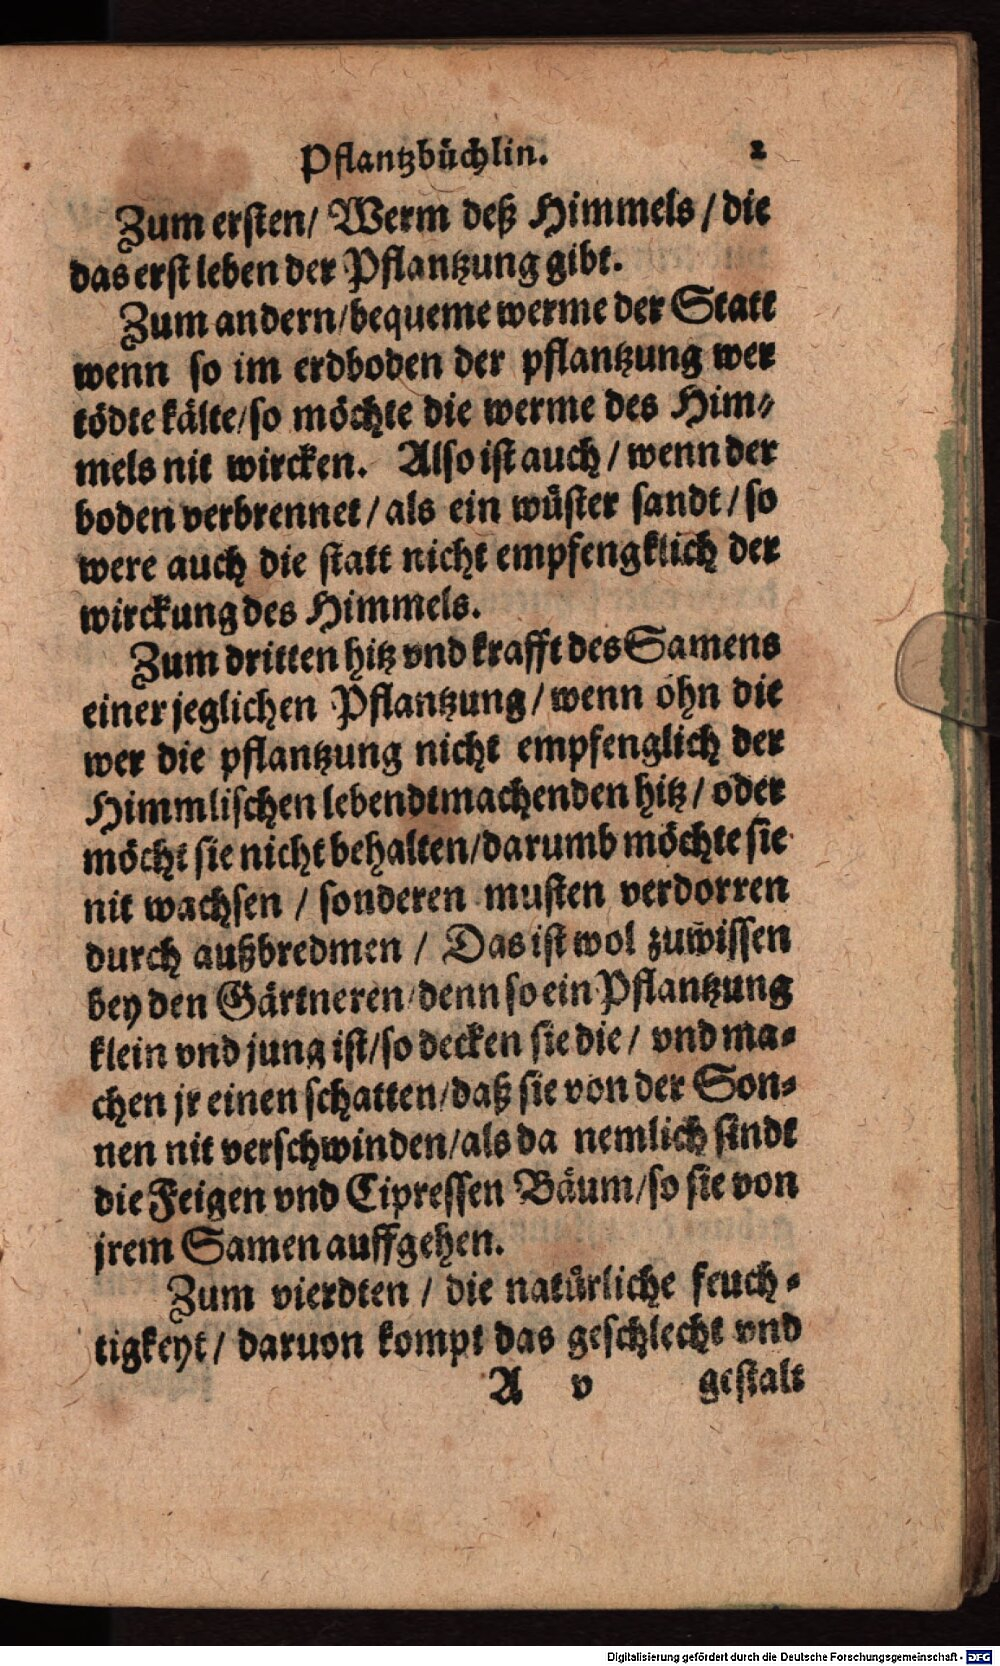 Pflantzbüchlin. 2
Zum ersten/ Werm deß Himmels / die
das erst leben der Pflantzung gibt.
Zum andern/bequeme werme der Statt
wenn so im erdboden der pflantzung wer
tödte kälte/so möchte die werme des Him-
mels nit wircken. Also ist auch / wenn der
boden verbrennet / als ein wůster sandt / so
were auch die statt nicht empfengklich der
wirckung des Himmels.
Zum dritten hitz vnd krafft des Samens
einer jeglichen Pflantzung / wenn ohn die
wer die pflantzung nicht empfenglich der
Himmlischen lebendtmachenden hitz / oder
möcht sie nicht behalten/darumb möchte sie
nit wachsen / sonderen musten verdorren
durch außbredmen / Das ist wol zuwissen
bey den Gärtneren/denn so ein Pflantzung
klein vnd jung ist/so decken sie die / vnd ma-
chen jr einen schatten/daß sie von der Son-
nen nit verschwinden/als da nemlich sindt
die Feigen vnd Cipressen Bäum/so sie von
jrem Samen auffgehen.
Zum vierdten / die natůrliche feuch-
tigkeyt / daruon kompt das geschlecht vnd
A v gestalt
Digitalisierung gefördert durch die Deutsche Forschungsgemeinschaft - DFG